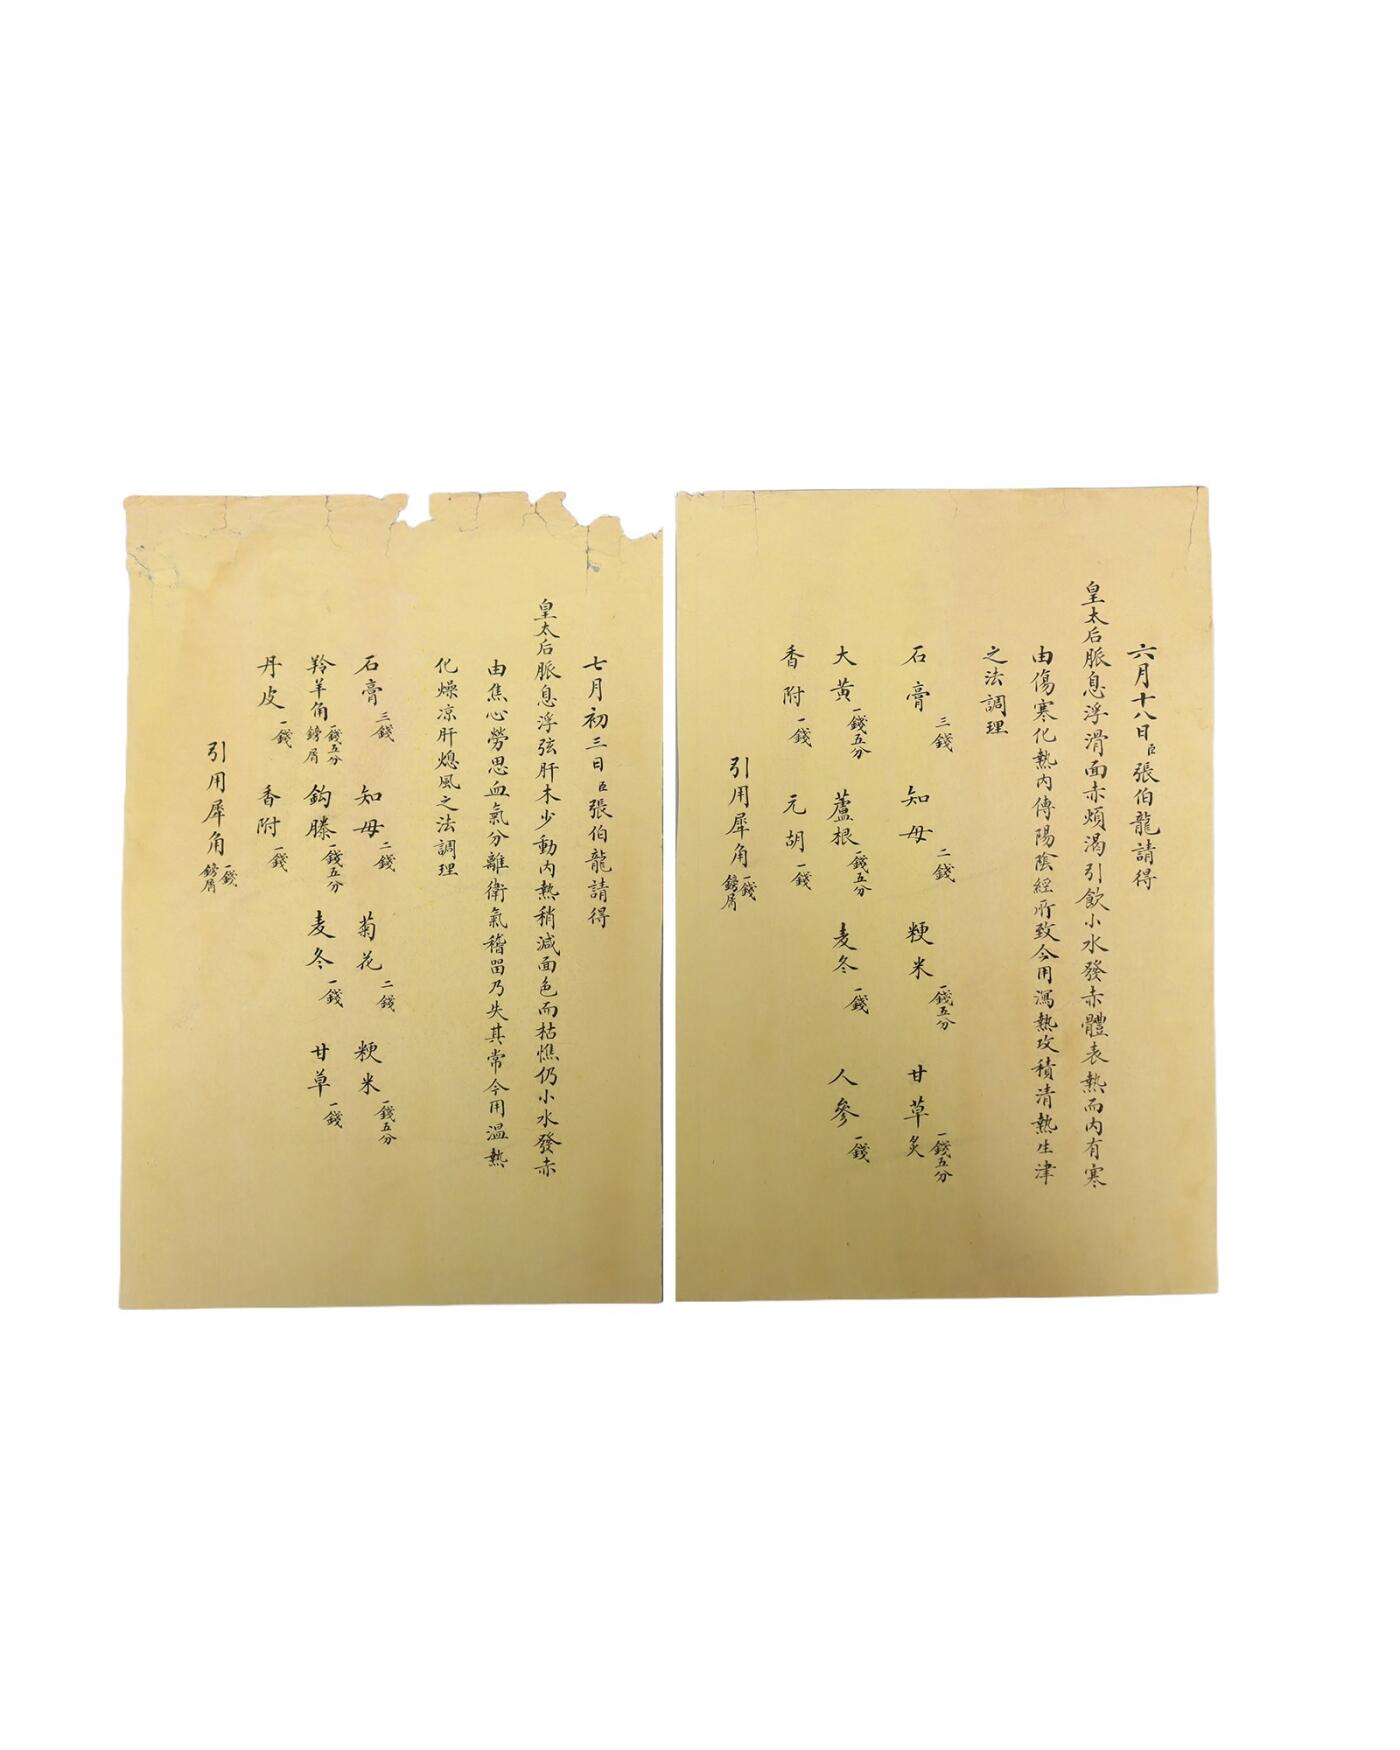 六月十八日臣張伯龍請得
皇太后脈息浮滑面赤煩渴引飲小水發赤體表熱而內有寒
由傷寒化熱內傳陽陰經所致今用瀉熱攻積清熱生津
之法調理
石膏三錢 知母二錢 粳米一錢五分 甘草炙一錢五分
大黃一錢五分 蘆根一錢五分 麦冬一錢 人參一錢
香附一錢 元胡一錢
引用犀角一錢鎊屑
七月初三日臣張伯龍請得
皇太后脈息浮弦肝木少動內熱稍減面色而枯憔仍小水發赤
由焦心勞思血氣分離衛氣稽留乃失其常今用溫熱
化燥凉肝熄風之法調理
石膏三錢 知母二錢 菊花二錢 粳米一錢五分
羚羊角一錢五分鎊屑 鈎藤一錢五分 麦冬一錢 甘草一錢
丹皮一錢 香附一錢
引用犀角一錢鎊屑